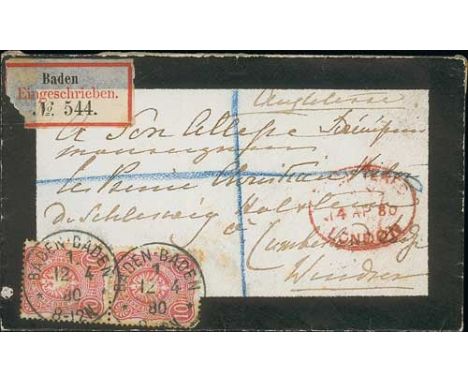 Baden
Eingeschrieben.
№ 544.
Angleterre
A Son Altesse
monseigneur
le Prince Christian
de Schleswig Holstein
à
Cumberland
Windsor
14 AP 80
LONDON
BADEN-BADEN
1
12 4
80
8-12V
BADEN-BADEN
1
12 4
80
10
10